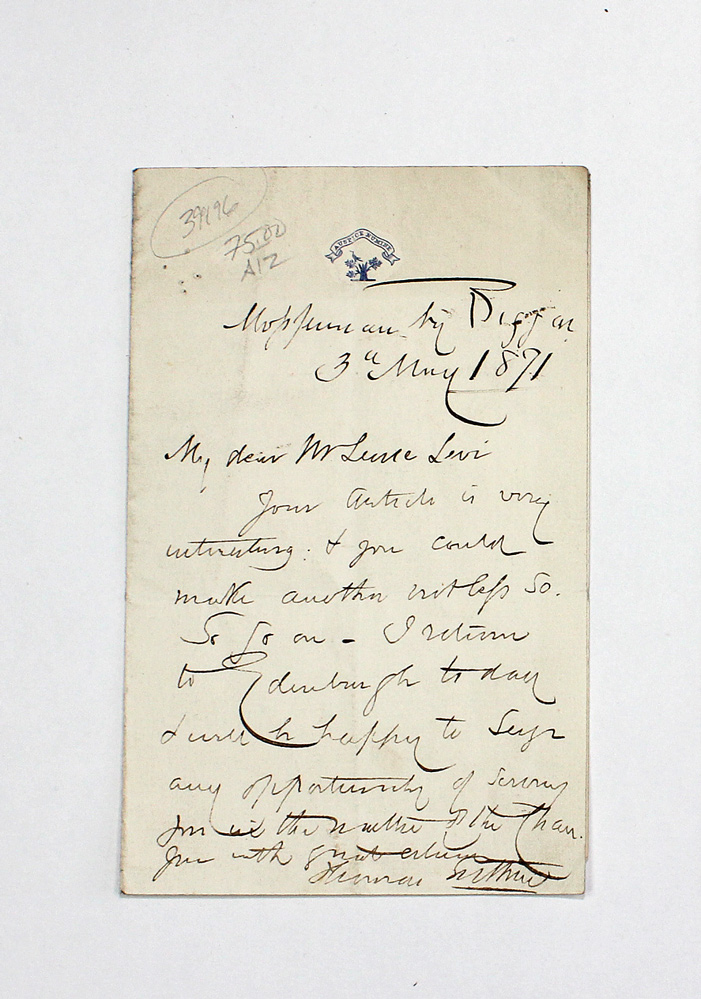 39496
75.00
A12
AUSPICE NUMINE
Mossfennan by Biggar
3d May 1871
My dear Mr Leone Levi
Your Article is very
interesting: & you could
make another not less so.
So go on - I return
to Edinburgh to day
& will be happy to seize
any opportunity of serving
you in the matter of the Chair.
Yrs with great esteem
Thomas Guthrie